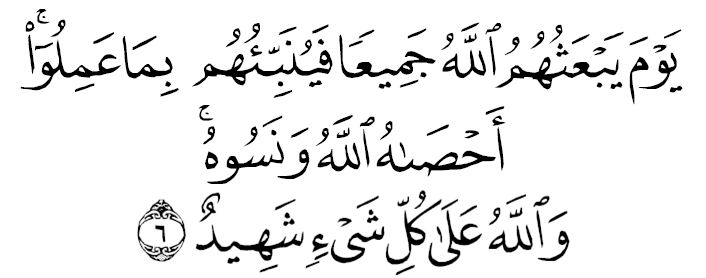 يَوْمَ يَبْعَثُهُمُ ٱللَّهُ جَمِيعًا فَيُنَبِّئُهُم بِمَا عَمِلُوٓا۟ ۚ
أَحْصَىٰهُ ٱللَّهُ وَنَسُوهُ ۚ
وَٱللَّهُ عَلَىٰ كُلِّ شَىْءٍ شَهِيدٌ ٦